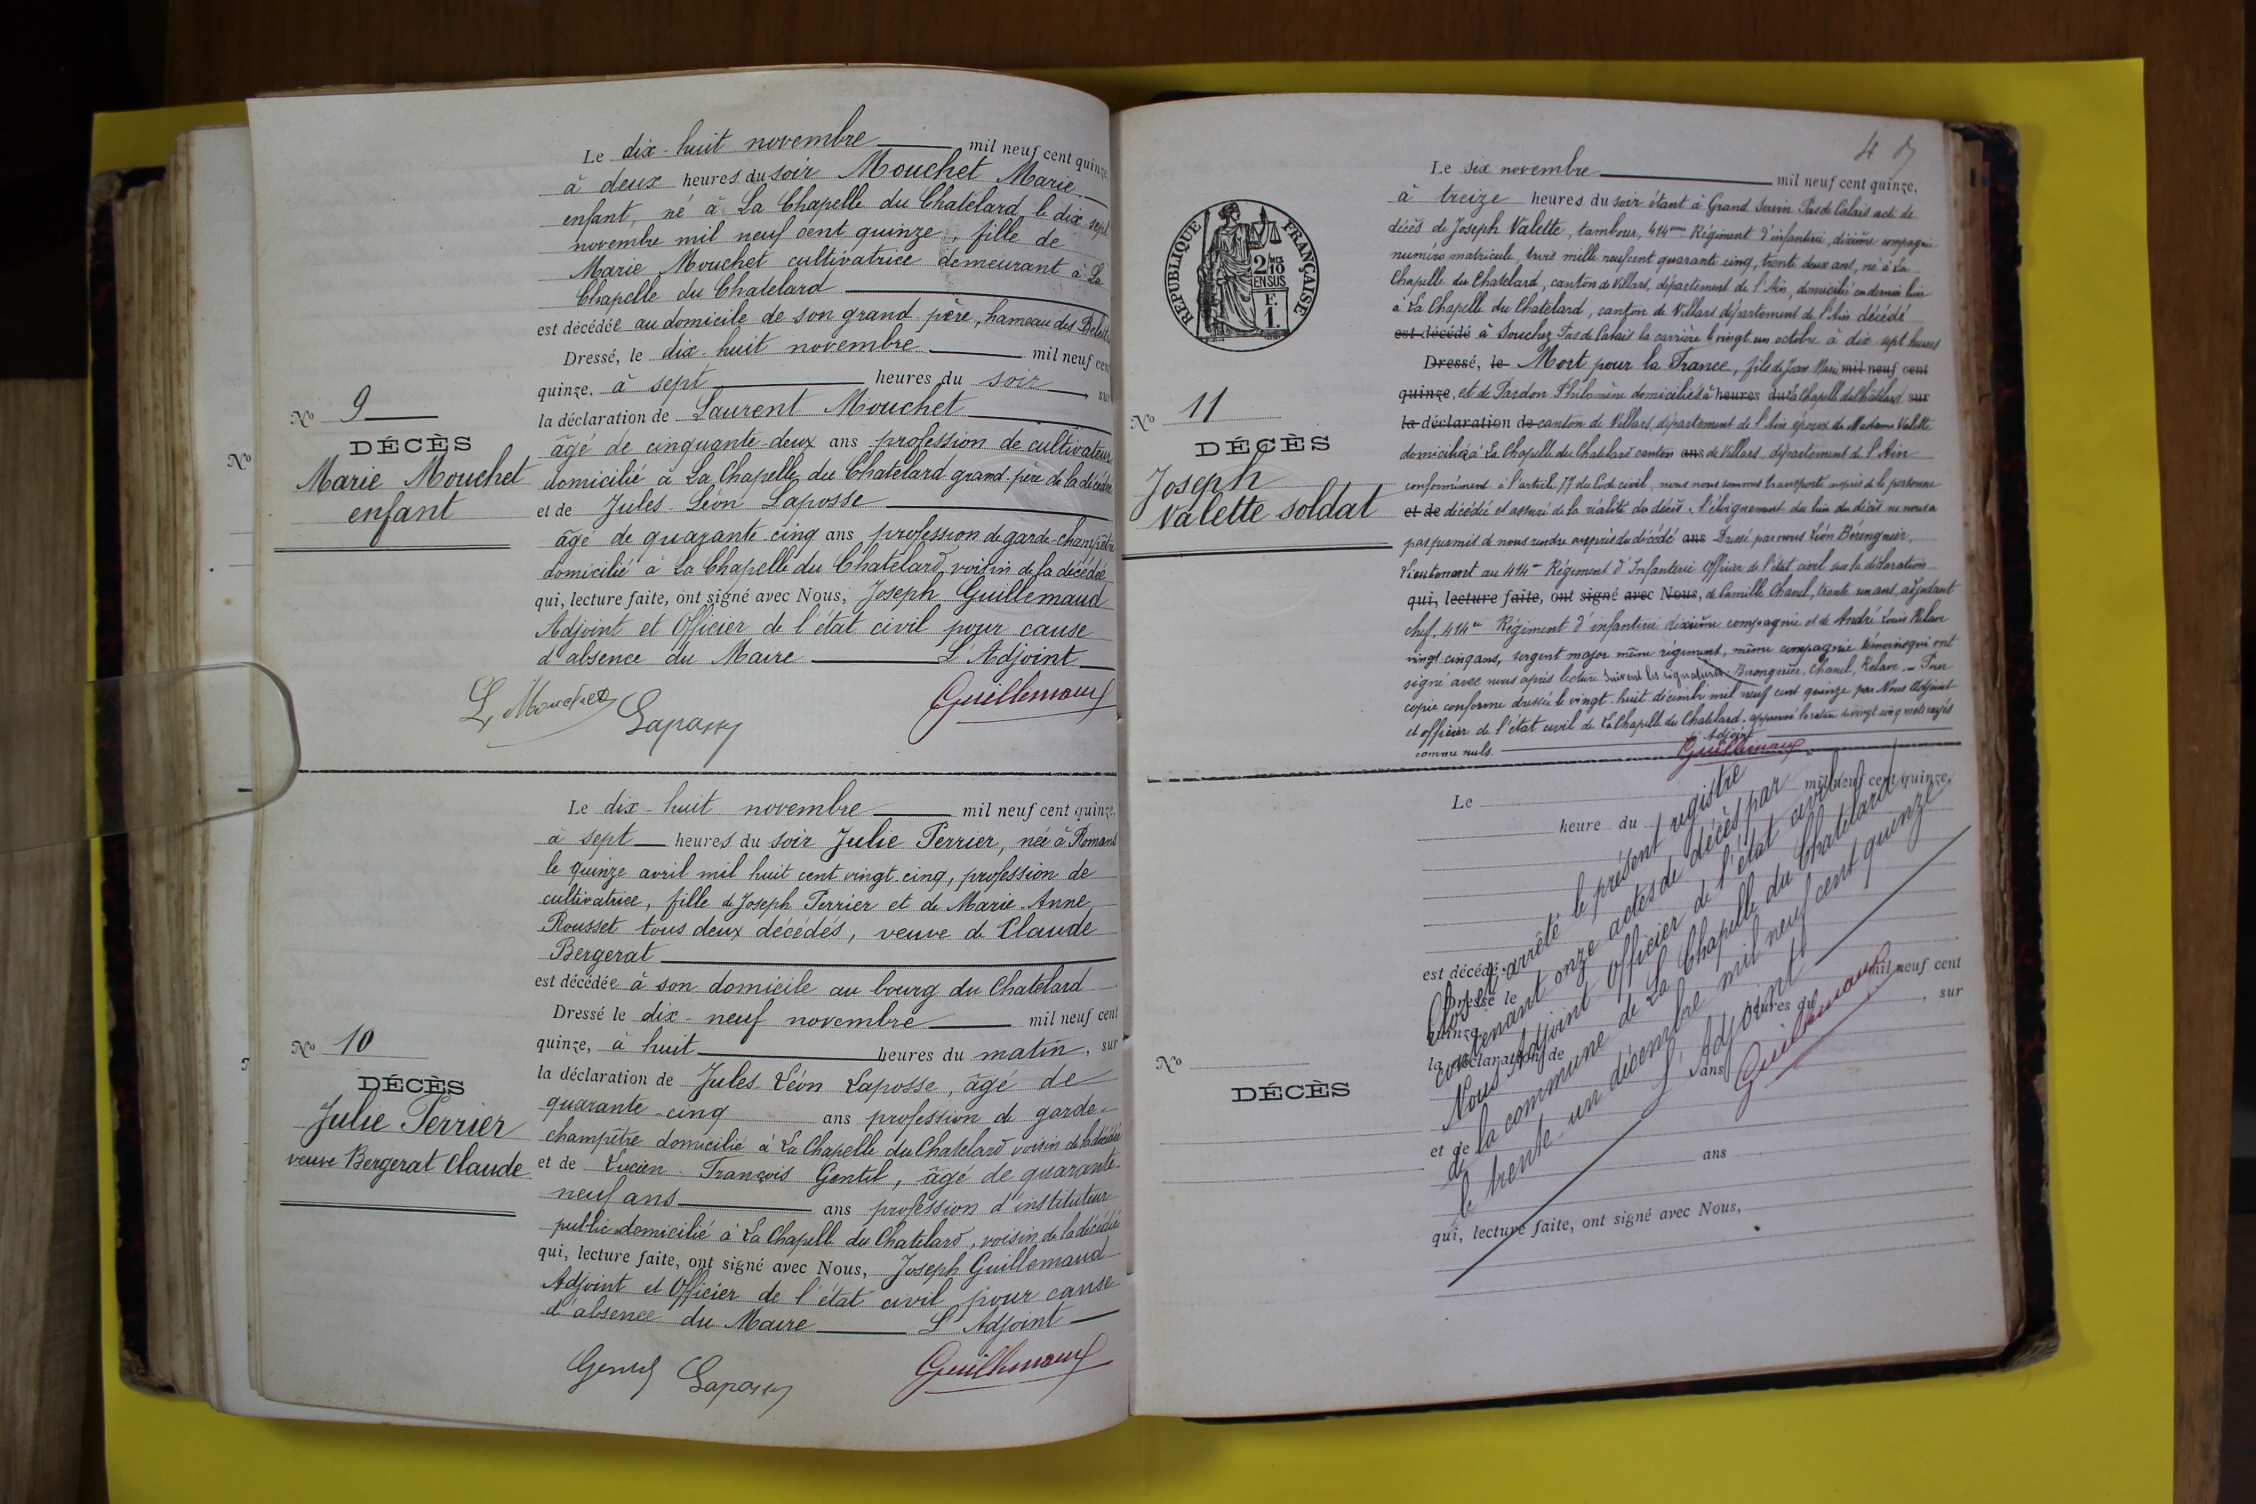 Le dix-huit novembre mil neuf cent quinze
à deux heures du soir Mouchet Marie
enfant, né à La Chapelle du Chatelard, le dix sept
novembre mil neuf cent quinze, fille de
Marie Mouchet cultivatrice demeurant à La
Chapelle du Chatelard
est décédée au domicile de son grand père, hameau des
Dressé, le dix-huit novembre mil neuf cent
quinze, à sept heures du soir, sur
la déclaration de Laurent Mouchet
âgé de cinquante-deux ans profession de cultivateur
domicilié à La Chapelle du Chatelard grand père de la décédée
et de Jules Léon Laposse
âgé de quarante cinq ans profession de garde-champêtre
domicilié à La Chapelle du Chatelard, voisin de la décédée
qui, lecture faite, ont signé avec Nous, Joseph Guillemaud
Adjoint et Officier de l'état civil pour cause
d'absence du Maire L'Adjoint
L. Mouchet Laposse Guillemaud
No 9
DÉCÈS
Marie Mouchet
enfant
No
Le dix-huit novembre mil neuf cent quinze,
à sept heures du soir Julie Perrier, née à Romans
le quinze avril mil huit cent vingt-cinq, profession de
cultivatrice, fille de Joseph Perrier et de Marie-Anne
Rousset tous deux décédés, veuve de Claude
Bergerat
est décédée à son domicile au bourg du Chatelard
Dressé le dix-neuf novembre mil neuf cent
quinze, à huit heures du matin, sur
la déclaration de Jules Léon Laposse, âgé de
quarante-cinq ans profession de garde-
champêtre domicilié à La Chapelle du Chatelard voisin de la décédée
et de Lucien François Gentil, âgé de quarante-
neuf ans ans profession d'instituteur
public domicilié à La Chapelle du Chatelard, voisin de la décédée
qui, lecture faite, ont signé avec Nous, Joseph Guillemaud
Adjoint et Officier de l'état civil pour cause
d'absence du Maire L'Adjoint
Gentil Laposse Guillemaud
No 10
DÉCÈS
Julie Perrier
veuve Bergerat Claude
4
RÉPUBLIQUE FRANÇAISE
2/10
EN SUS
F.
1.
No 11
DÉCÈS
Joseph
Valette soldat
Le six novembre mil neuf cent quinze,
à treize heures du soir étant à Grand Servin Pas de Calais acte de
décès de Joseph Valette, tambour, 414ème Régiment d'infanterie, dixième compagnie
numéro matricule, trois mille neuf cent quarante cinq, trente deux ans, né à La
Chapelle du Chatelard, canton de Villars, département de l'Ain, domicilié en dernier lieu
à La Chapelle du Chatelard, canton de Villars département de l'Ain décédé
est décédé à Souchez Pas de Calais la carrière le vingt un octobre à dix-sept heures
Dressé, le Mort pour la France, fils de Jean Marie mil neuf cent
quinze, et de Pardon Philomène domiciliés à heures du à La Chapelle du Chatelard sur
la déclaration de canton de Villars, département de l'Ain époux de Valette
domiciliée à La Chapelle du Chatelard canton ans de Villars, département de l'Ain
conformément à l'article 77 du Code civil, nous nous sommes transporté auprès de la personne
et de décédée et assuré de la réalité du décès. L'éloignement du lieu du décès ne nous a
pas permis de nous rendre auprès du décédé ans Dressé par nous Léon Bérenguier,
Lieutenant au 414me Régiment d'Infanterie Officier de l'état civil sur la déclaration
qui, lecture faite, ont signé avec Nous, de Camille Chanel, trente un ans, adjudant
chef, 414me Régiment d'infanterie dixième compagnie et de André Louis Relave
vingt cinq ans, sergent major même régiment, même compagnie témoins qui ont
signé avec nous après lecture. Suivent les signatures: Chanel, Relave. Pour
copie conforme dressée le vingt-huit décembre mil neuf cent quinze par Nous Adjoint
et officier de l'état civil de La Chapelle du Chatelard. approuvé la rature de vingt cinq mots rayés
comme nuls. L'Adjoint
Guillemaud
No
DÉCÈS
Le mil neuf cent quinze,
heure du
est décédé
Dressé le mil neuf cent
quinze heures du , sur
la déclaration de
ans
et de
ans
qui, lecture faite, ont signé avec Nous,
Clos et arrêté le présent registre
contenant onze actes de décès par
Nous Adjoint Officier de l'état civil
de la commune de La Chapelle du Chatelard
le trente-un décembre mil neuf cent quinze
L'Adjoint
Guillemaud